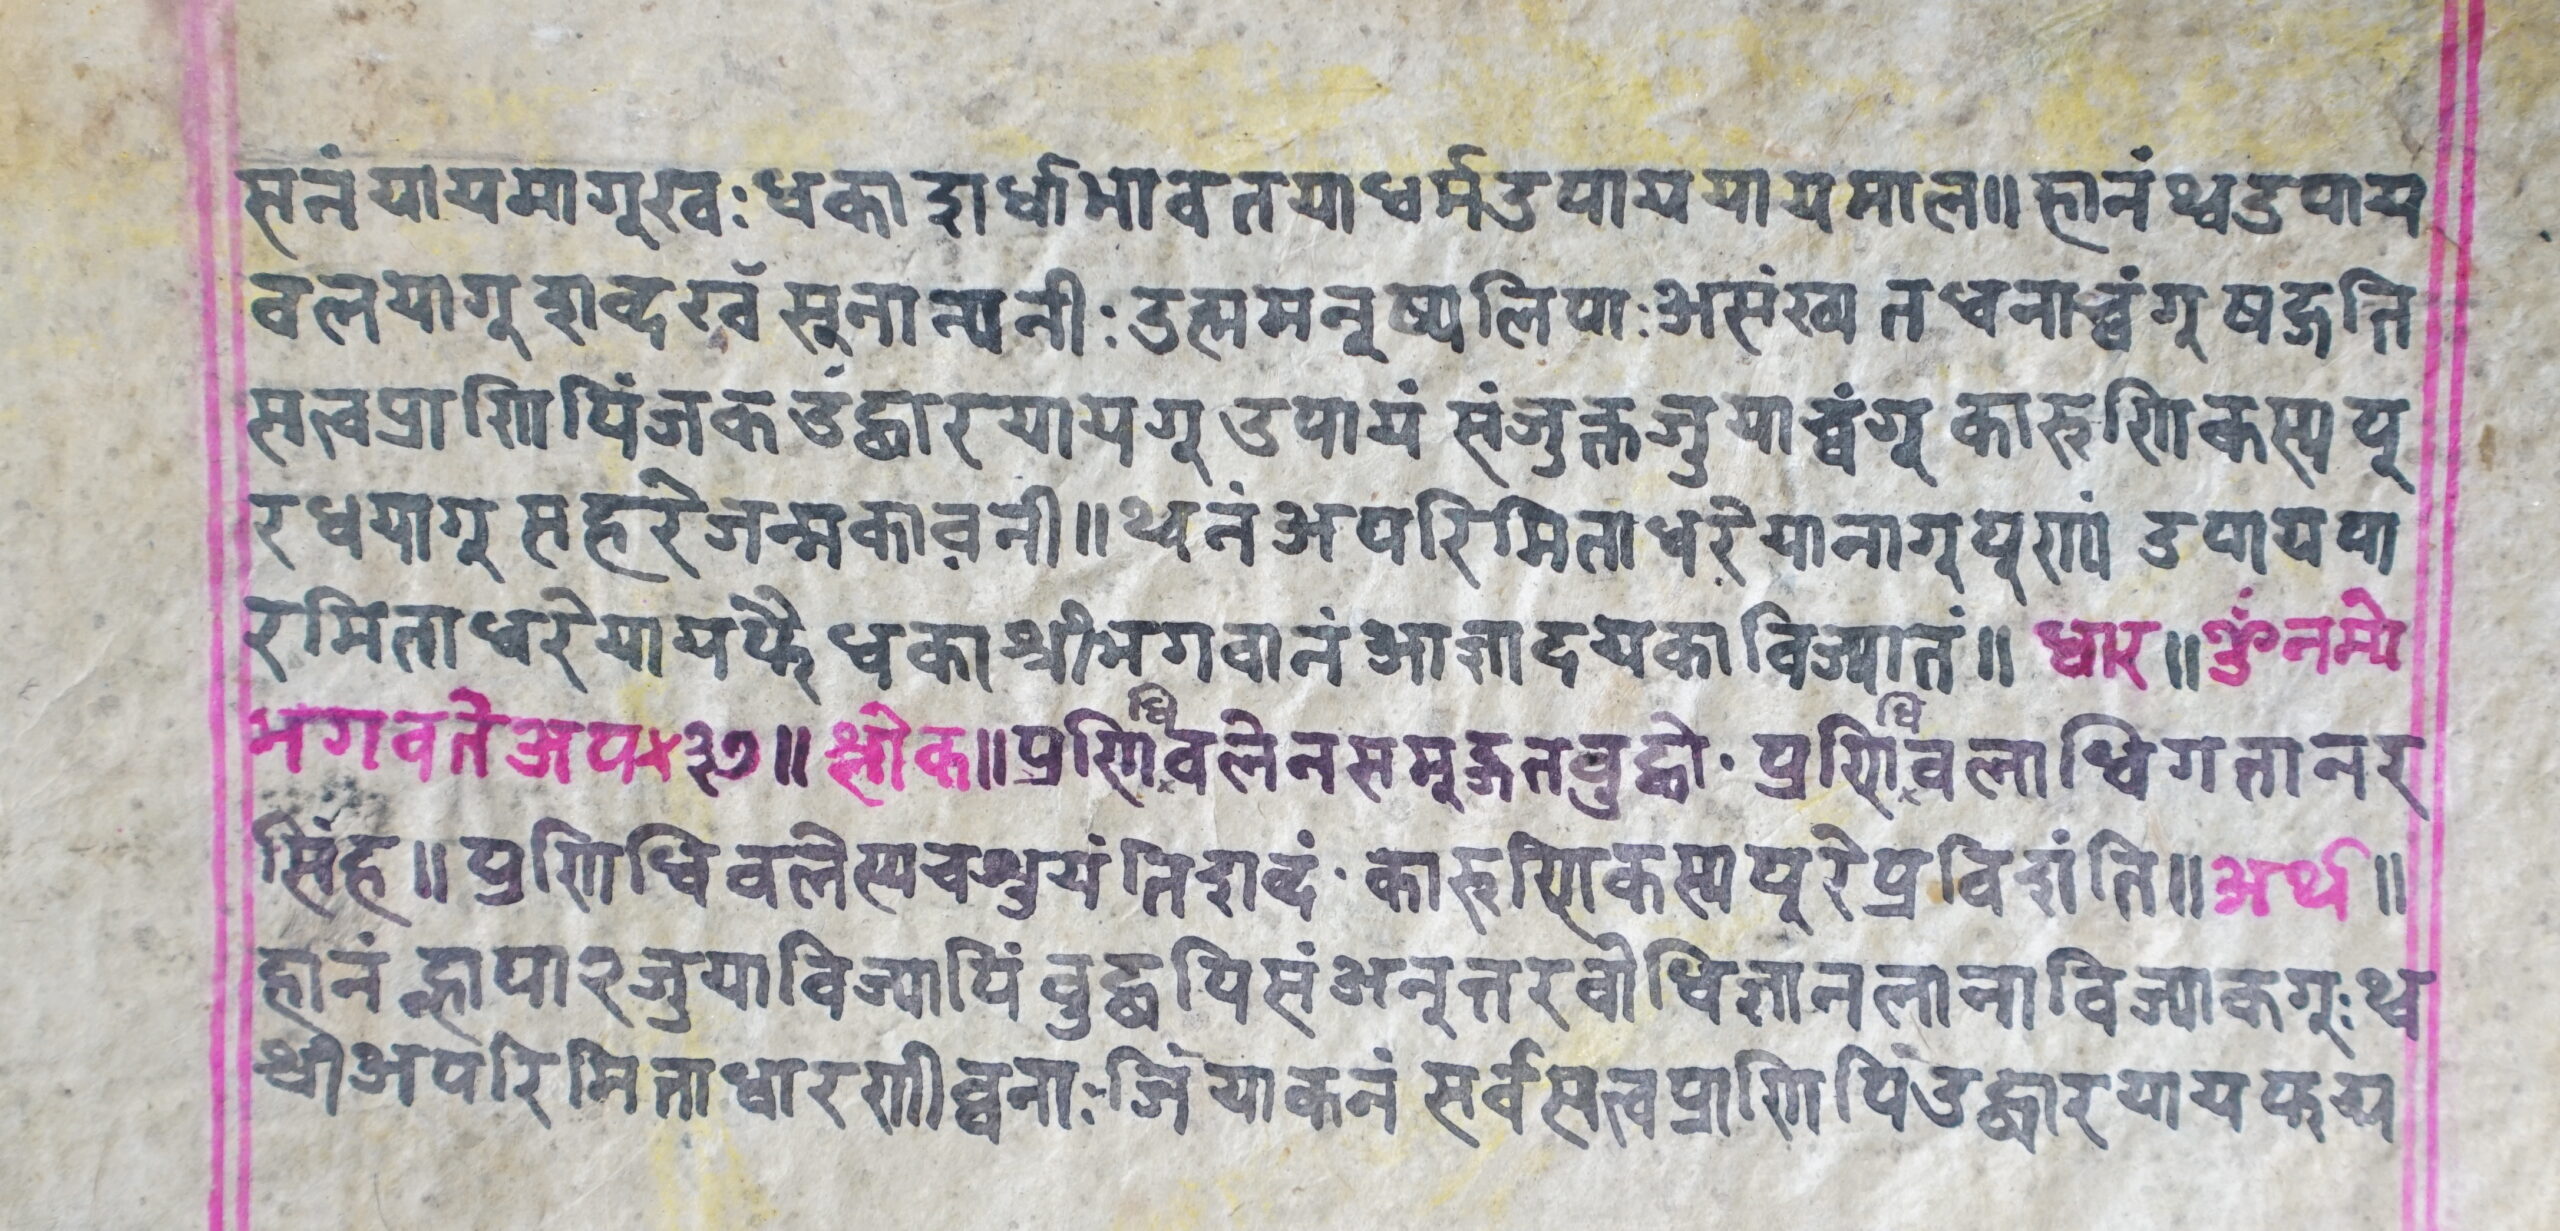 सनं यायमागूखः धका शार्धाभावतया धर्मउपाययायमाल॥ हानं थ्वउपाय
वलयागू शव्दखँ सूनान्यनीः उत्ममनूष्यलिपाः असंख्यत धनाच्वंगू षद्गति
सत्वप्राणिपिंजक उंद्धारयायगू उपायं संजुक्तजुयाच्वंगू कारुणिकस्य पू
रधयागू सहरे जन्मकावनी॥ थनं अपरिमिताधरे यानागू पूणां उपायपा
रमिताधरेयायफै धका श्रीभगवानं आज्ञादयका विज्यातं॥ धार॥ ॐ नम्यो
भगवते अप×३७॥ श्लोक॥ प्रणिधिवलेनसमूद्गतवुद्धो· प्रणिधिवलाधिगतानर
सिंह॥ प्रणिधिवलैस्यचश्रुयंतिशव्दं· कारुणिकस्यपूरेप्रविशंति॥ अर्थ॥
हानं ह्लापा२जुयाविज्यापिं वुद्धपिसं अनूत्तरवोधिज्ञानलानाविज्याकगूः थ्व
श्रीअपरिमिताधारणीव्वनाः जिं याकनं सर्वसत्वप्राणिपिं उद्धारयायफय्